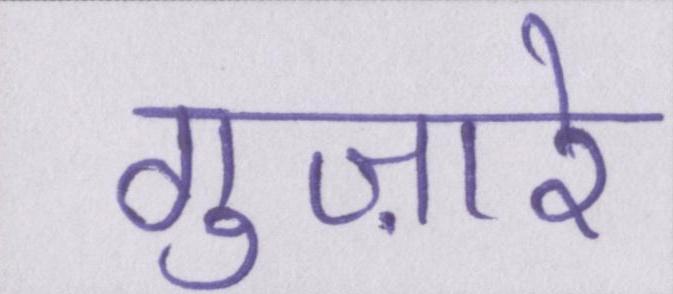 गुज़ारे